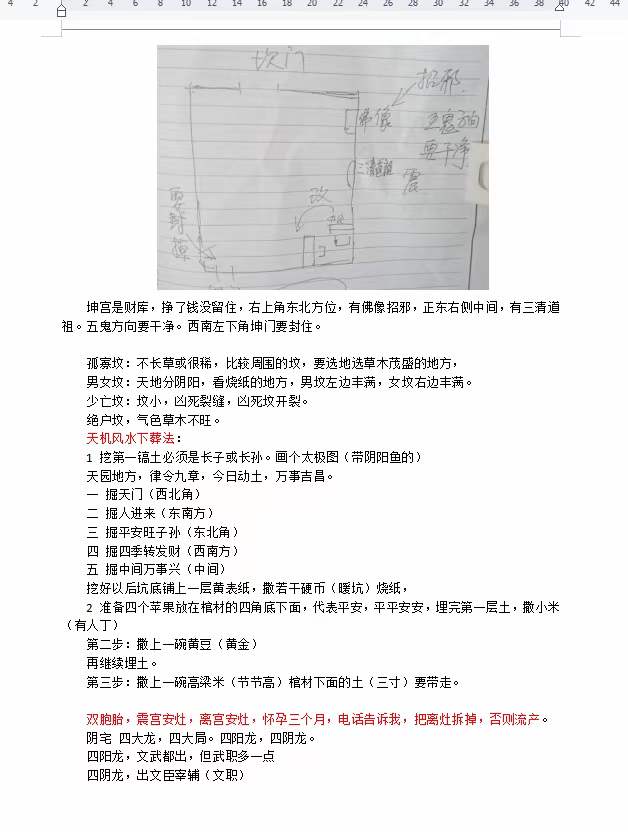 4 2 2 4 6 8 10 12 14 16 18 20 22 24 26 28 30 32 34 36 38 40 42 44
坎门
招邪
佛像
五鬼方向
要干净
三清道祖
震
改
要封掉
坤宫是财库，挣了钱没留住，右上角东北方位，有佛像招邪，正东右侧中间，有三清道
祖。五鬼方向要干净。西南左下角坤门要封住。
孤寡坟：不长草或很稀，比较周围的坟，要选地选草木茂盛的地方，
男女坟：天地分阴阳，看烧纸的地方，男坟左边丰满，女坟右边丰满。
少亡坟：坟小，凶死裂缝，凶死坟开裂。
绝户坟，气色草木不旺。
天机风水下葬法：
1 挖第一镐土必须是长子或长孙。画个太极图（带阴阳鱼的）
天园地方，律令九章，今日动土，万事吉昌。
一 掘天门（西北角）
二 掘人进来（东南方）
三 掘平安旺子孙（东北角）
四 掘四季转发财（西南方）
五 掘中间万事兴（中间）
挖好以后坑底铺上一层黄表纸，撒若干硬币（暖坑）烧纸，
2 准备四个苹果放在棺材的四角底下面，代表平安，平平安安，埋完第一层土，撒小米
（有人丁）
第二步：撒上一碗黄豆（黄金）
再继续埋土。
第三步：撒上一碗高梁米（节节高）棺材下面的土（三寸）要带走。
双胞胎，震宫安灶，离宫安灶，怀孕三个月，电话告诉我，把离灶拆掉，否则流产。
阴宅 四大龙，四大局。四阳龙，四阴龙。
四阳龙，文武都出，但武职多一点
四阴龙，出文臣宰辅（文职）